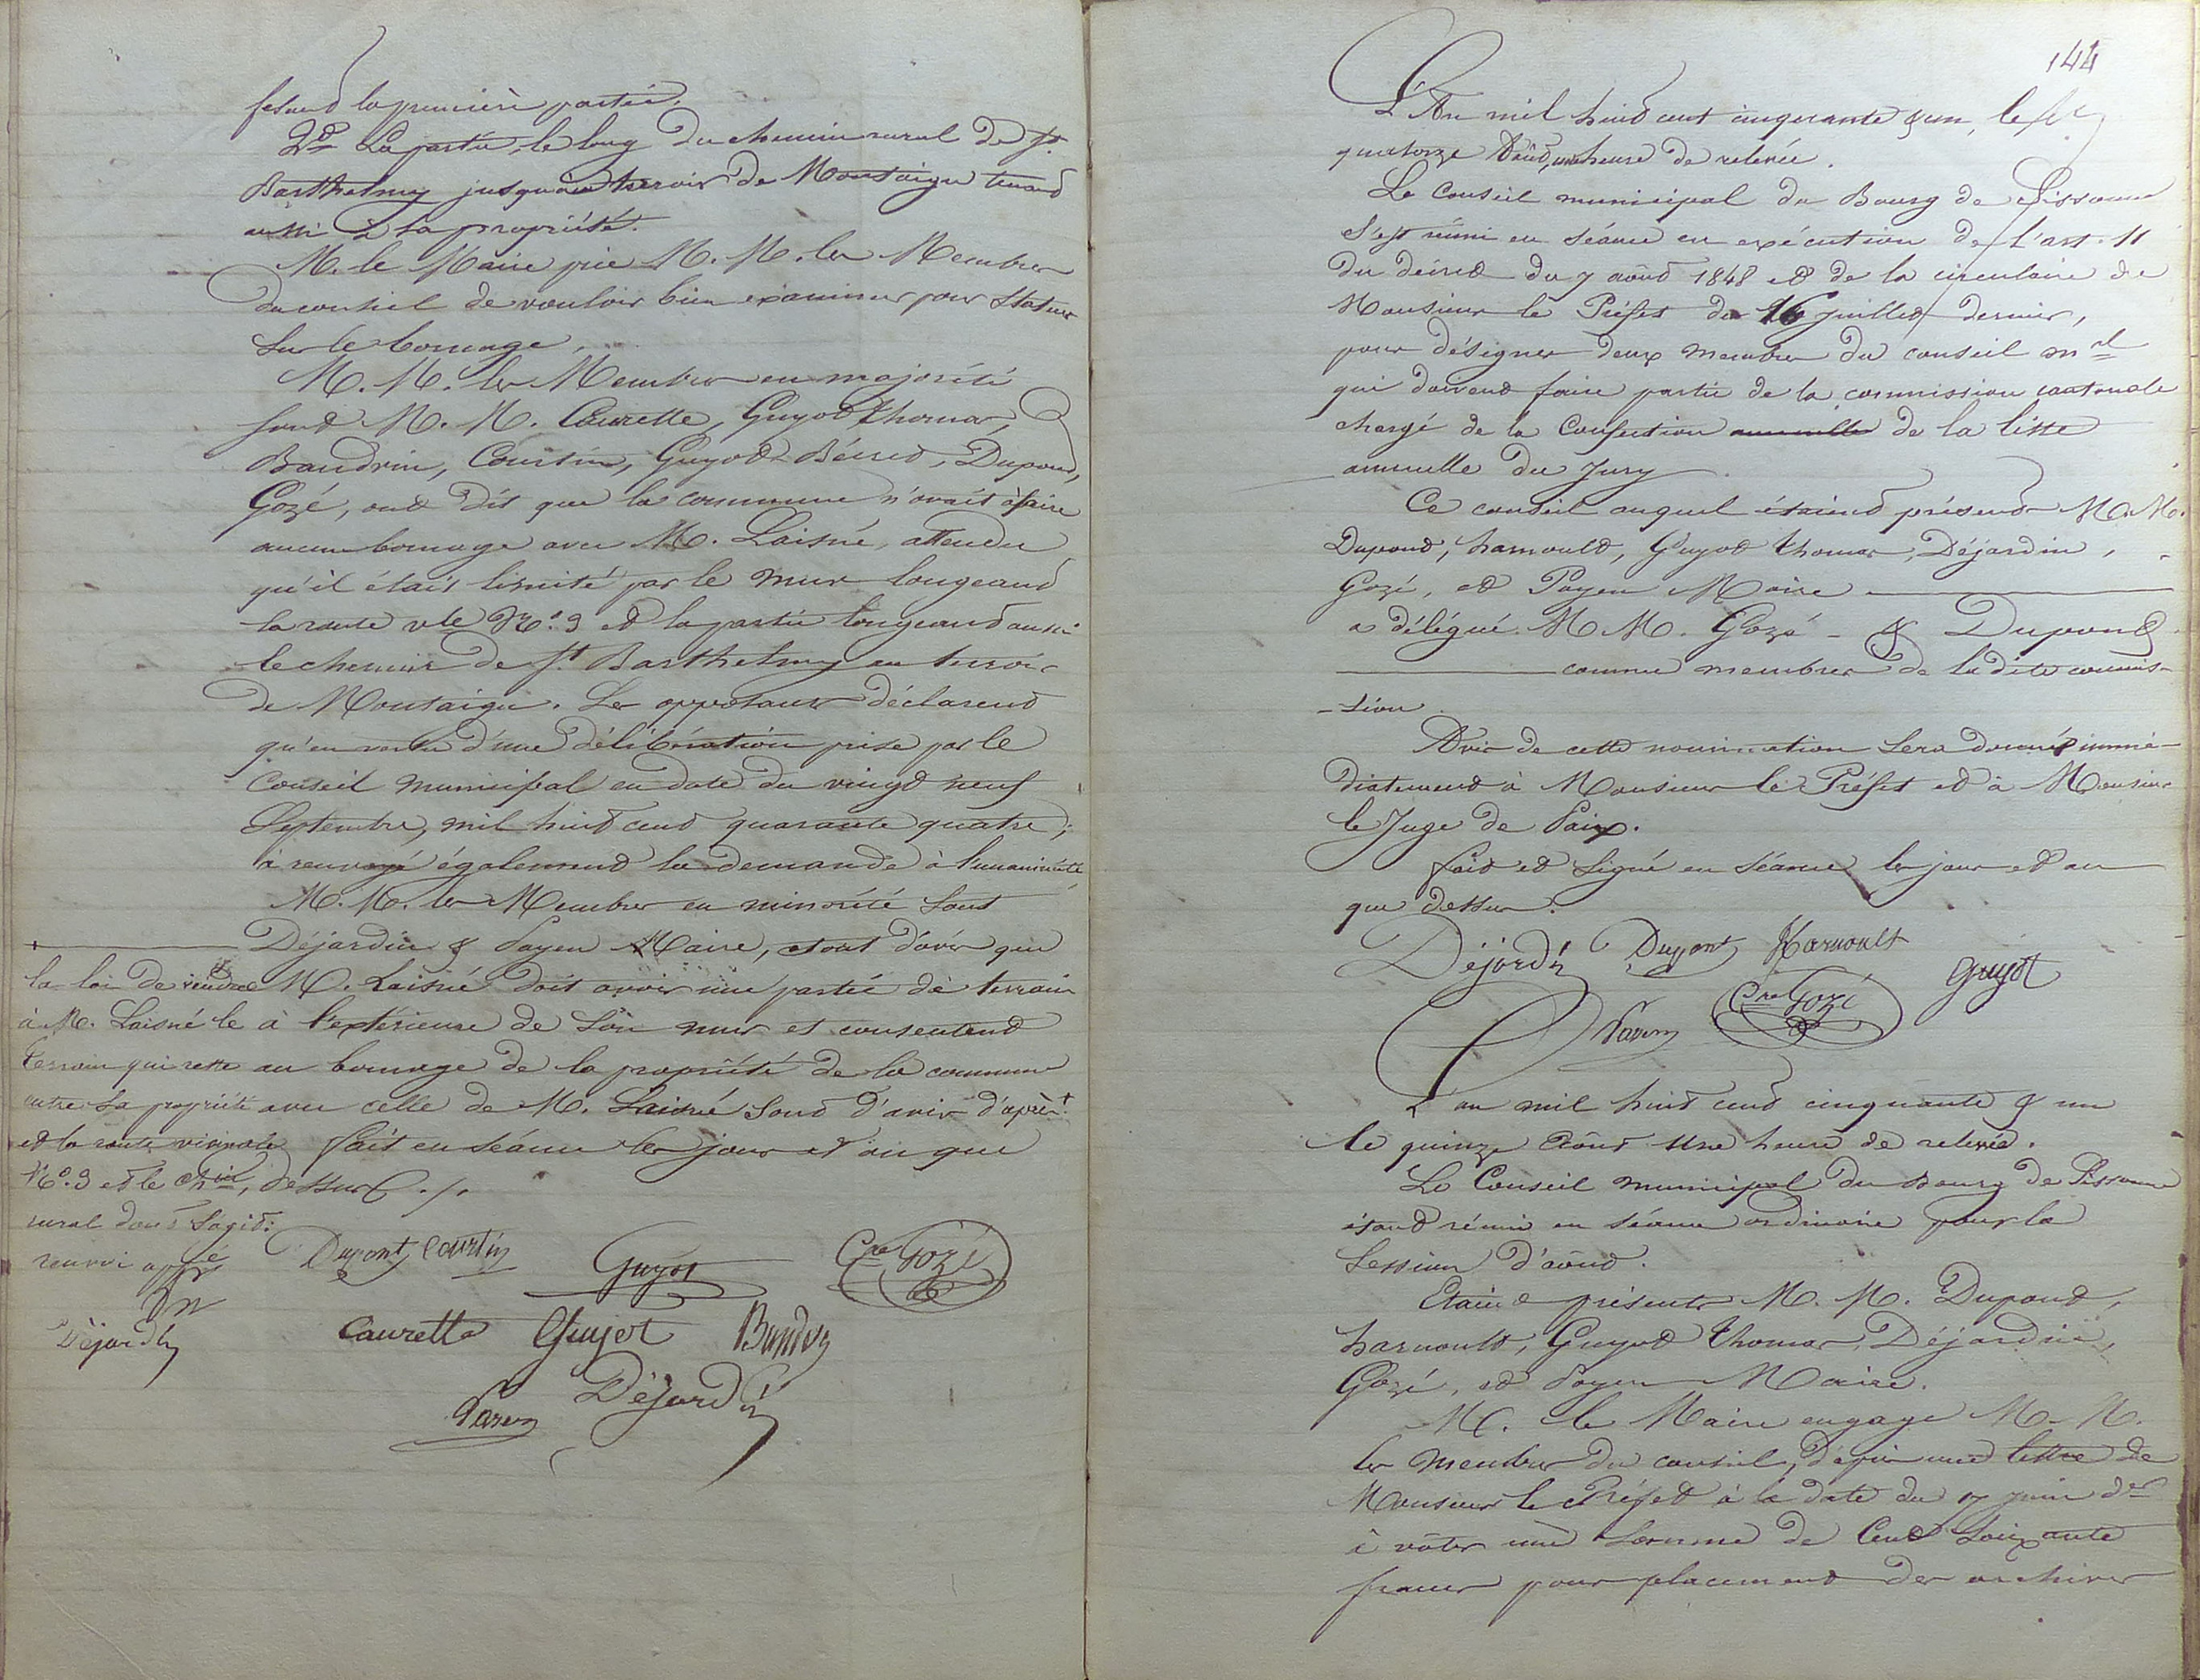 fesand la première partie.
2º La partie, le long du chemin rural de St.
Barthelmy jusqu'au terroir de Montaigu tenand
aussi à sa propriété.
M. le Maire prie M. M. les Membres
du conseil de vouloir bien examiner pour Statuer
sur le bornage.
M. M. les Membres en majorité
sont M. M. Caurette, Guyod thomas,
Baudrin, Courtin, Guyod Béired, Dupond,
Gozé, ond dit que la commune n'avait à faire
aucun bornage avec M. Laisné, attendu
qu'il était limité par le mur longeand
la route vle Nº. 3 et la partie longeand aussi
le chemin de St Barthelmy au terroir
de Montaigu. Les opposans déclarend
qu'en vertu d'une délibération prise par le
Conseil municipal en date du vingd neuf
Septembre, mil huid cend quarante quatre;
a renvoyé également la demande à l'unanimité
M. M. les Membres en minorité sont
Déjardin & Payen Maire, sont d'avis que
M. Laisné doit avoir une partie de terrain
à l'extérieure de son mur et consentend
au bornage de la propriété de la commune
avec celle de M. Laisné sond d'avis d'après +
Fait en séance les jour et an que
dessus ./.
+ la loi de vendre
à M. Laisné le
terrain qui reste
entre sa propriété
et la route vicinale
Nº. 3 et le chin,
rural dond s'agid:
renvoi appé
Pn
Déjardin
Dupont Courtin Guyot Cre Gozé
Caurette Guyot Baudrin
Payen Déjardin
144
L'An mil huid cent cinquante & un, le
quatorze Août, une heure de relevée.
Le Conseil municipal du Bourg de Sissonne
s'est réuni en séance en exécution de l'art. 11
du décred du 7 aôud 1848 ed de la circulaire de
Monsieur le Préfet du 16 juilled dernier,
pour désigner deux membres du conseil mal
qui doivend faire partie de la commission cantonale
chargé de la confection annuelle de la liste
annuelle du Jury
Ce conseil auquel étaiend présends M. M.
Dupond, harnould, Guyod thomas, Déjardin,
Gozé, ed Payen Maire
a délégué M M. Gozé & Dupond
comme membres de la dite commis-
-sion.
Avis de cette nomination sera donnée immé-
diatemend à Monsieur le Préfet ed à Monsieur
le Juge de Paix.
Faid ed Signé en séance les jour ed an
que dessus.
Déjardin Dupont Harnoult Guyot
Payen Cre Gozé
L'an mil huid cend cinquante & un
le quinze Aôud une heure de relevée.
Le Conseil municipal du Bourg de Sissonne
étand réuni en séance ordinaire pour la
Session d'aôud.
Etaiend présents M. M. Dupond,
harnould, Guyod thomas, Déjardin,
Gozé, ed Payen Maire.
M. le Maire engage M. M.
les membres du conseil, d'après une lettre de
Monsieur le Préfed à la date du 17 juin der
à voter une somme de Cend Soixante
francs pour placemend des archives